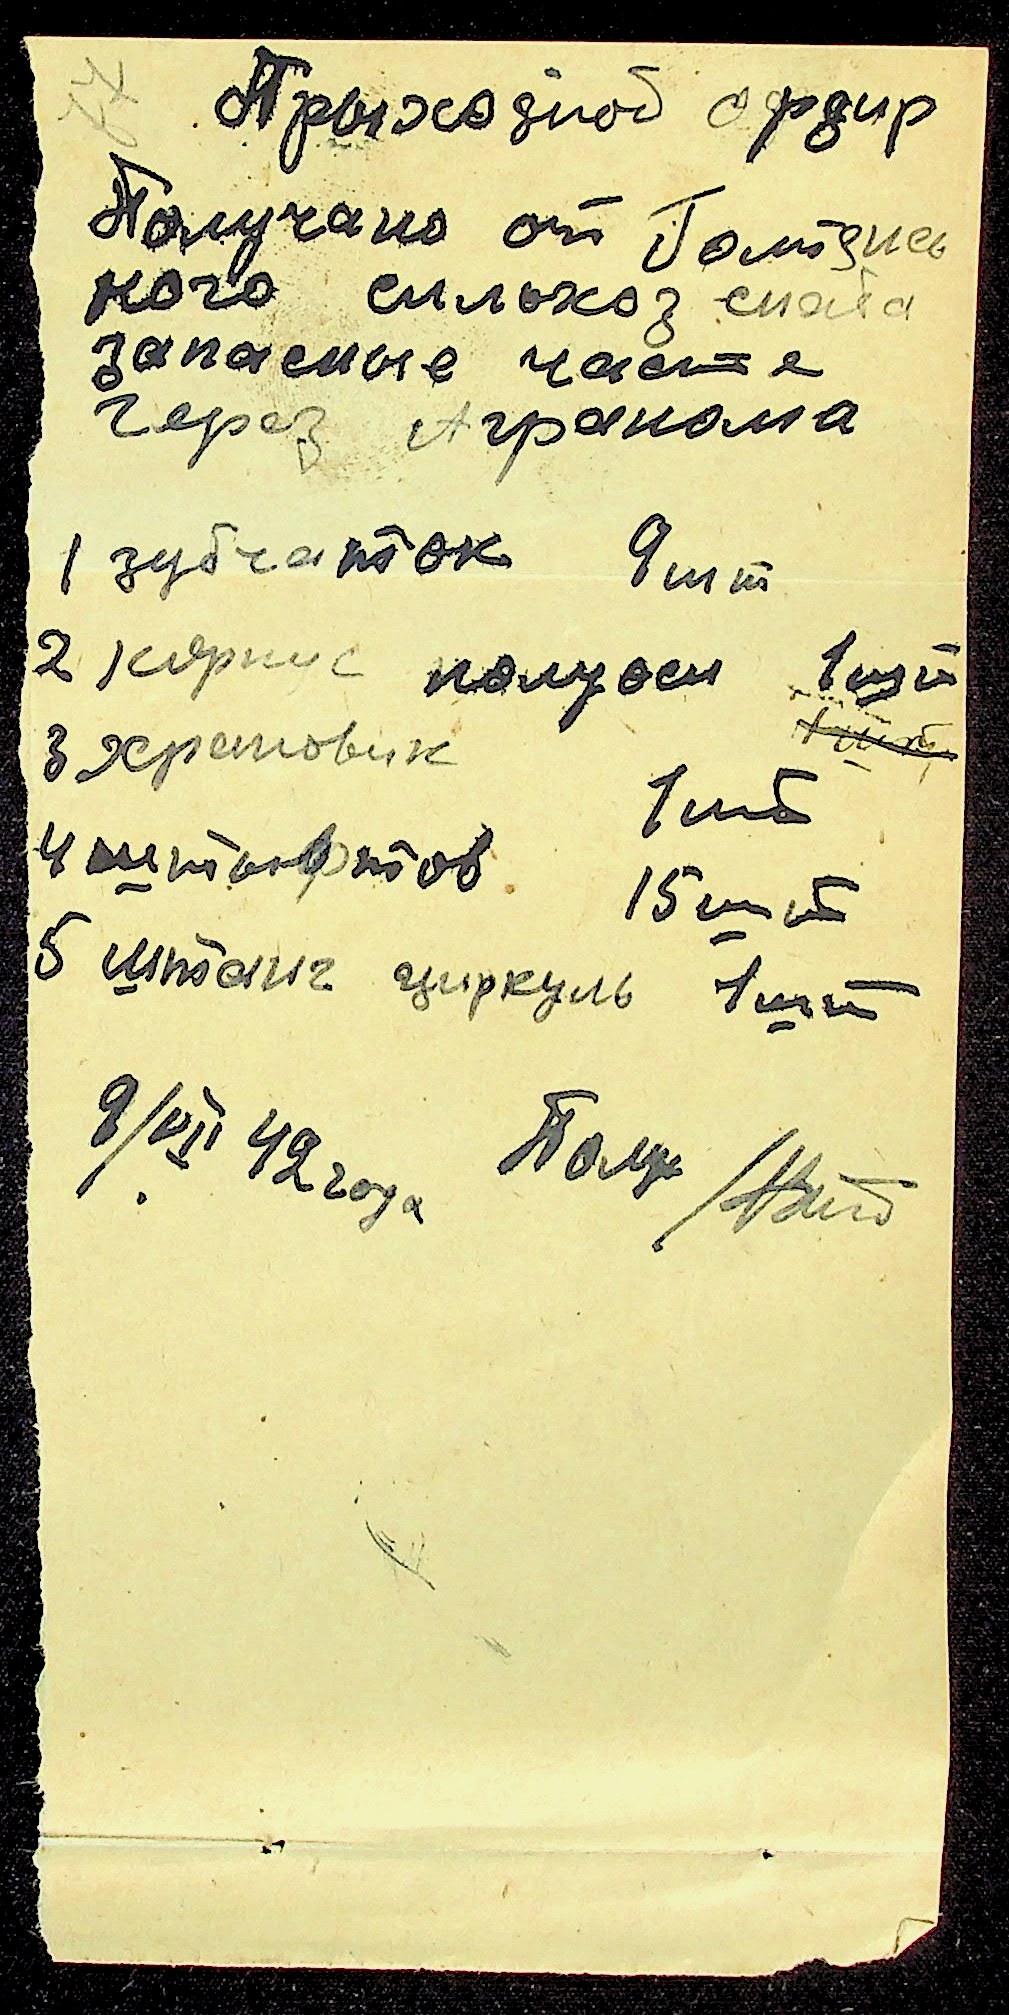 Прыходной ордир
Получано от Гомтднсь
кого сильхоз снаба
запасные части
Через Агранома
1 зубчаток 9 шт
2 корпус полуоси 1 шт
3 храповик
1 шт
4 штыфтов 15 шт
5 штанг циркуль 1 шт
9/VII 42 года Полу